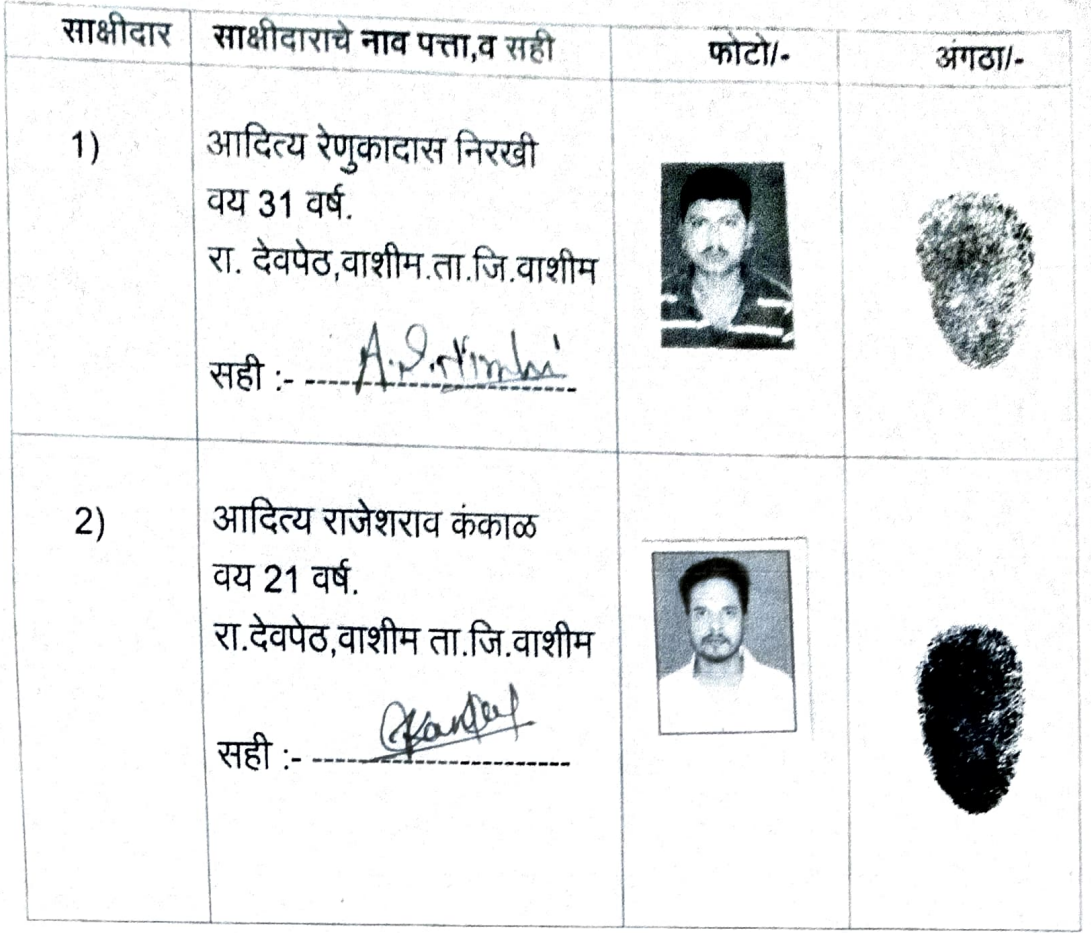 साक्षीदार साक्षीदाराचे नाव पत्ता,व सही फोटो/- अंगठा/-
1) आदित्य रेणुकादास निरखी
वय 31 वर्ष.
रा. देवपेठ,वाशीम.ता.जि.वाशीम
सही :- --------------------------
2) आदित्य राजेशराव कंकाळ
वय 21 वर्ष.
रा.देवपेठ,वाशीम ता.जि.वाशीम
सही :- --------------------------